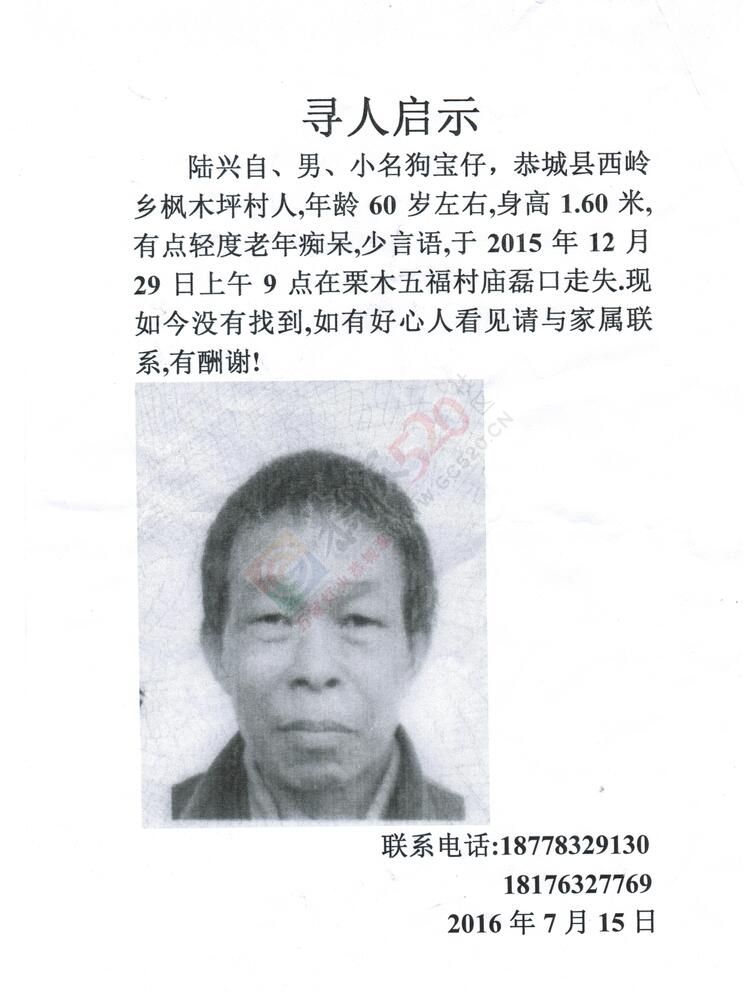 寻人启示
陆兴自、男、小名狗宝仔，恭城县西岭
乡枫木坪村人,年龄 60 岁左右,身高 1.60 米,
有点轻度老年痴呆,少言语,于 2015 年 12 月
29 日上午 9 点在栗木五福村庙磊口走失.现
如今没有找到,如有好心人看见请与家属联
系,有酬谢!
联系电话:18778329130
18176327769
2016 年 7 月 15 日
520
社区
WWW.GC520.CN